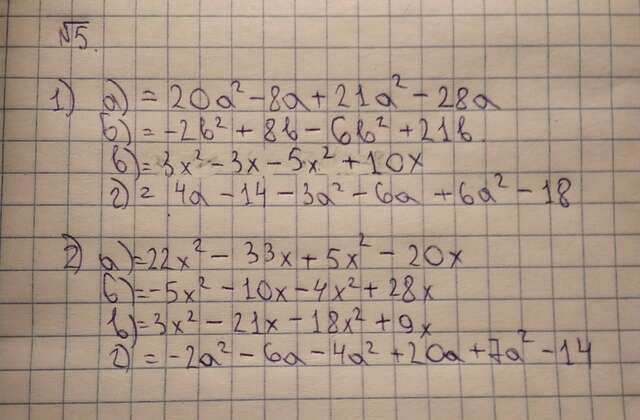 №5.
1) а) = 20a² - 8a + 21a² - 28a
б) = -2b² + 8b - 6b² + 21b
в) = 3x² - 3x - 5x² + 10x
г) = 4a - 14 - 3a² - 6a + 6a² - 18
2) а) = 22x² - 33x + 5x² - 20x
б) = -5x² - 10x - 4x² + 28x
в) = 3x² - 21x - 18x² + 9x
г) = -2a² - 6a - 4a² + 20a + 7a² - 14